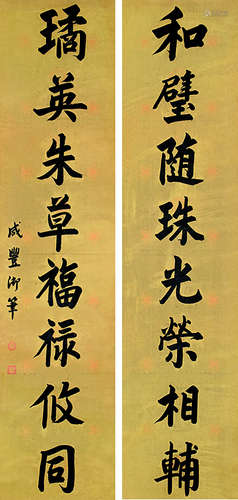 和璧随珠光榮相輔
璚英朱草福禄攸同
咸豐御筆